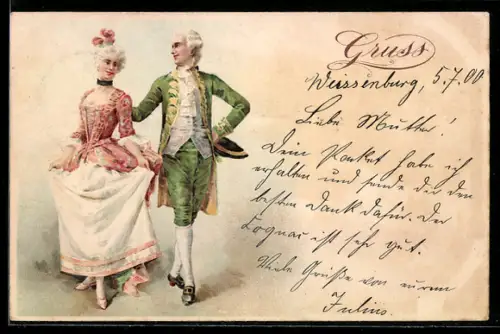 Gruss
Weissenburg, 5.7.00
Liebe Mutter!
Dein Packet habe ich
erhalten und sende dir den
besten Dank dafür. Der
Cognac ist sehr gut.
Viele Grüße von eurem
Julius.